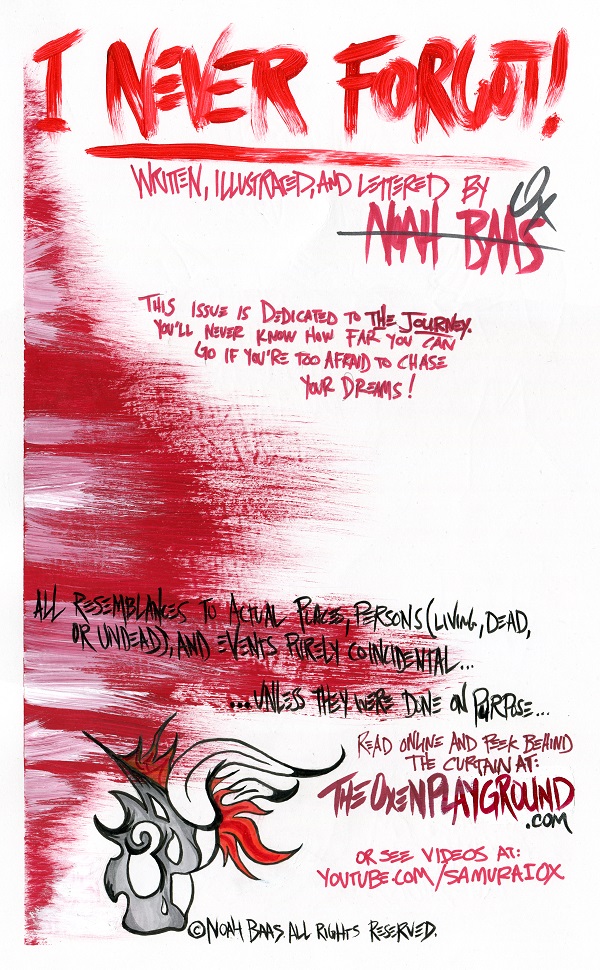 I NEVER FORGOT!
WRITTEN, ILLUSTRATED, AND LETTERED BY
NOAH BAAS
Ox
THIS ISSUE IS DEDICATED TO THE JOURNEY.
YOU'LL NEVER KNOW HOW FAR YOU CAN
GO IF YOU'RE TOO AFRAID TO CHASE
YOUR DREAMS!
ALL RESEMBLANCES TO ACTUAL PLACE, PERSONS (LIVING, DEAD,
OR UNDEAD), AND EVENTS PURELY COINCIDENTAL...
...UNLESS THEY WERE DONE ON PURPOSE...
READ ONLINE AND PEEK BEHIND
THE CURTAIN AT:
THEOXENPLAYGROUND
.COM
OR SEE VIDEOS AT:
YOUTUBE.COM/SAMURAIOX
©NOAH BAAS. ALL RIGHTS RESERVED.